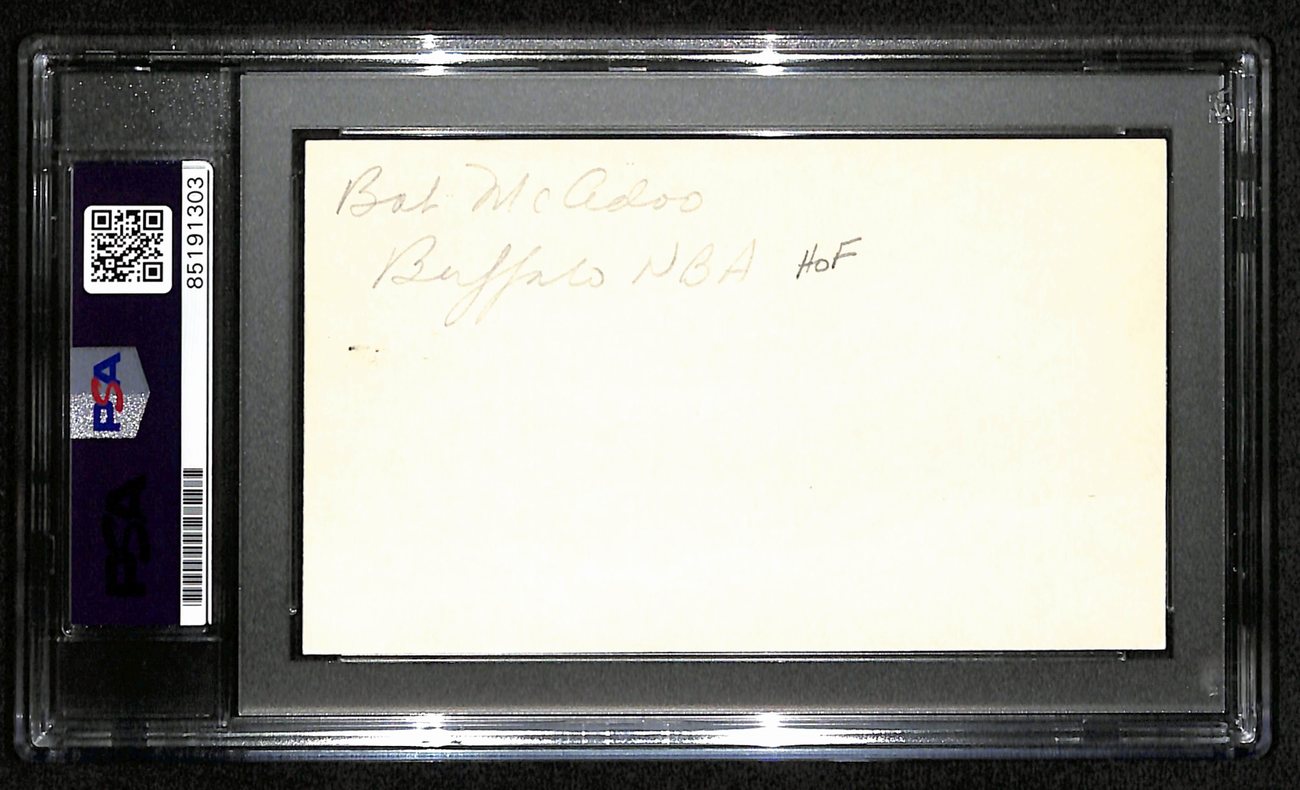 Bob McAdoo
Buffalo NBA HOF
85191303
PSA
PSA